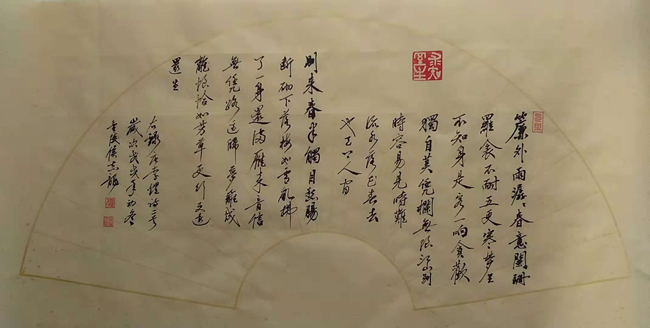 簾外雨潺潺春意闌珊
羅衾不耐五更寒夢里
不知身是客一晌貪歡
獨自莫凭欄無限江山別
時容易見時難
流水落花春去
也天上人間
別來春半觸目愁腸
斷砌下落梅如雪亂拂
了一身還滿雁來音信
無凭路遥歸夢難成
離恨恰如芳草更行更遠
還生
右錄李煜詩二首
歲次戊戌年初春
金陵侯志